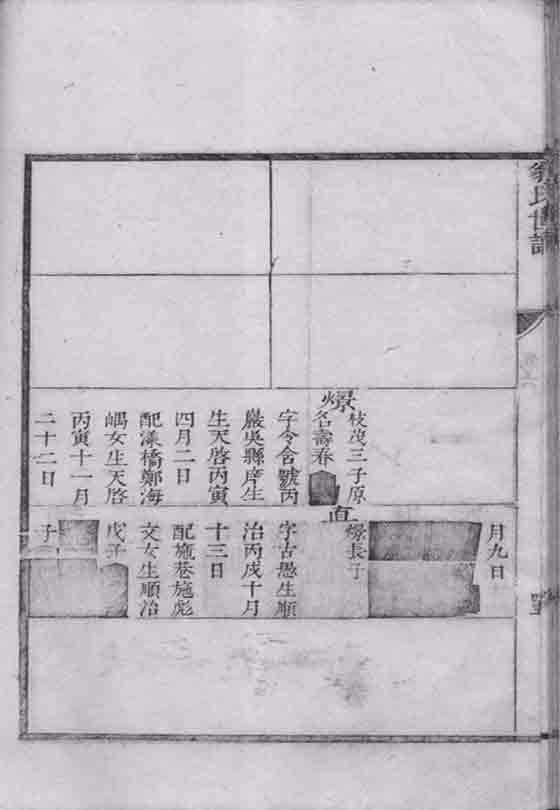 氏世譜
燝
枝茂三子原
名壽春
字令舍號丙
嚴吳縣庠生
生天啓丙寅
四月二日
配漾橋鄭海
嵎女生天啓
丙寅十一月
二十二日
月九日
直
燝長子
字古愚生順
治丙戌十月
十三日
配施巷施彪
文女生順治
戊子
子